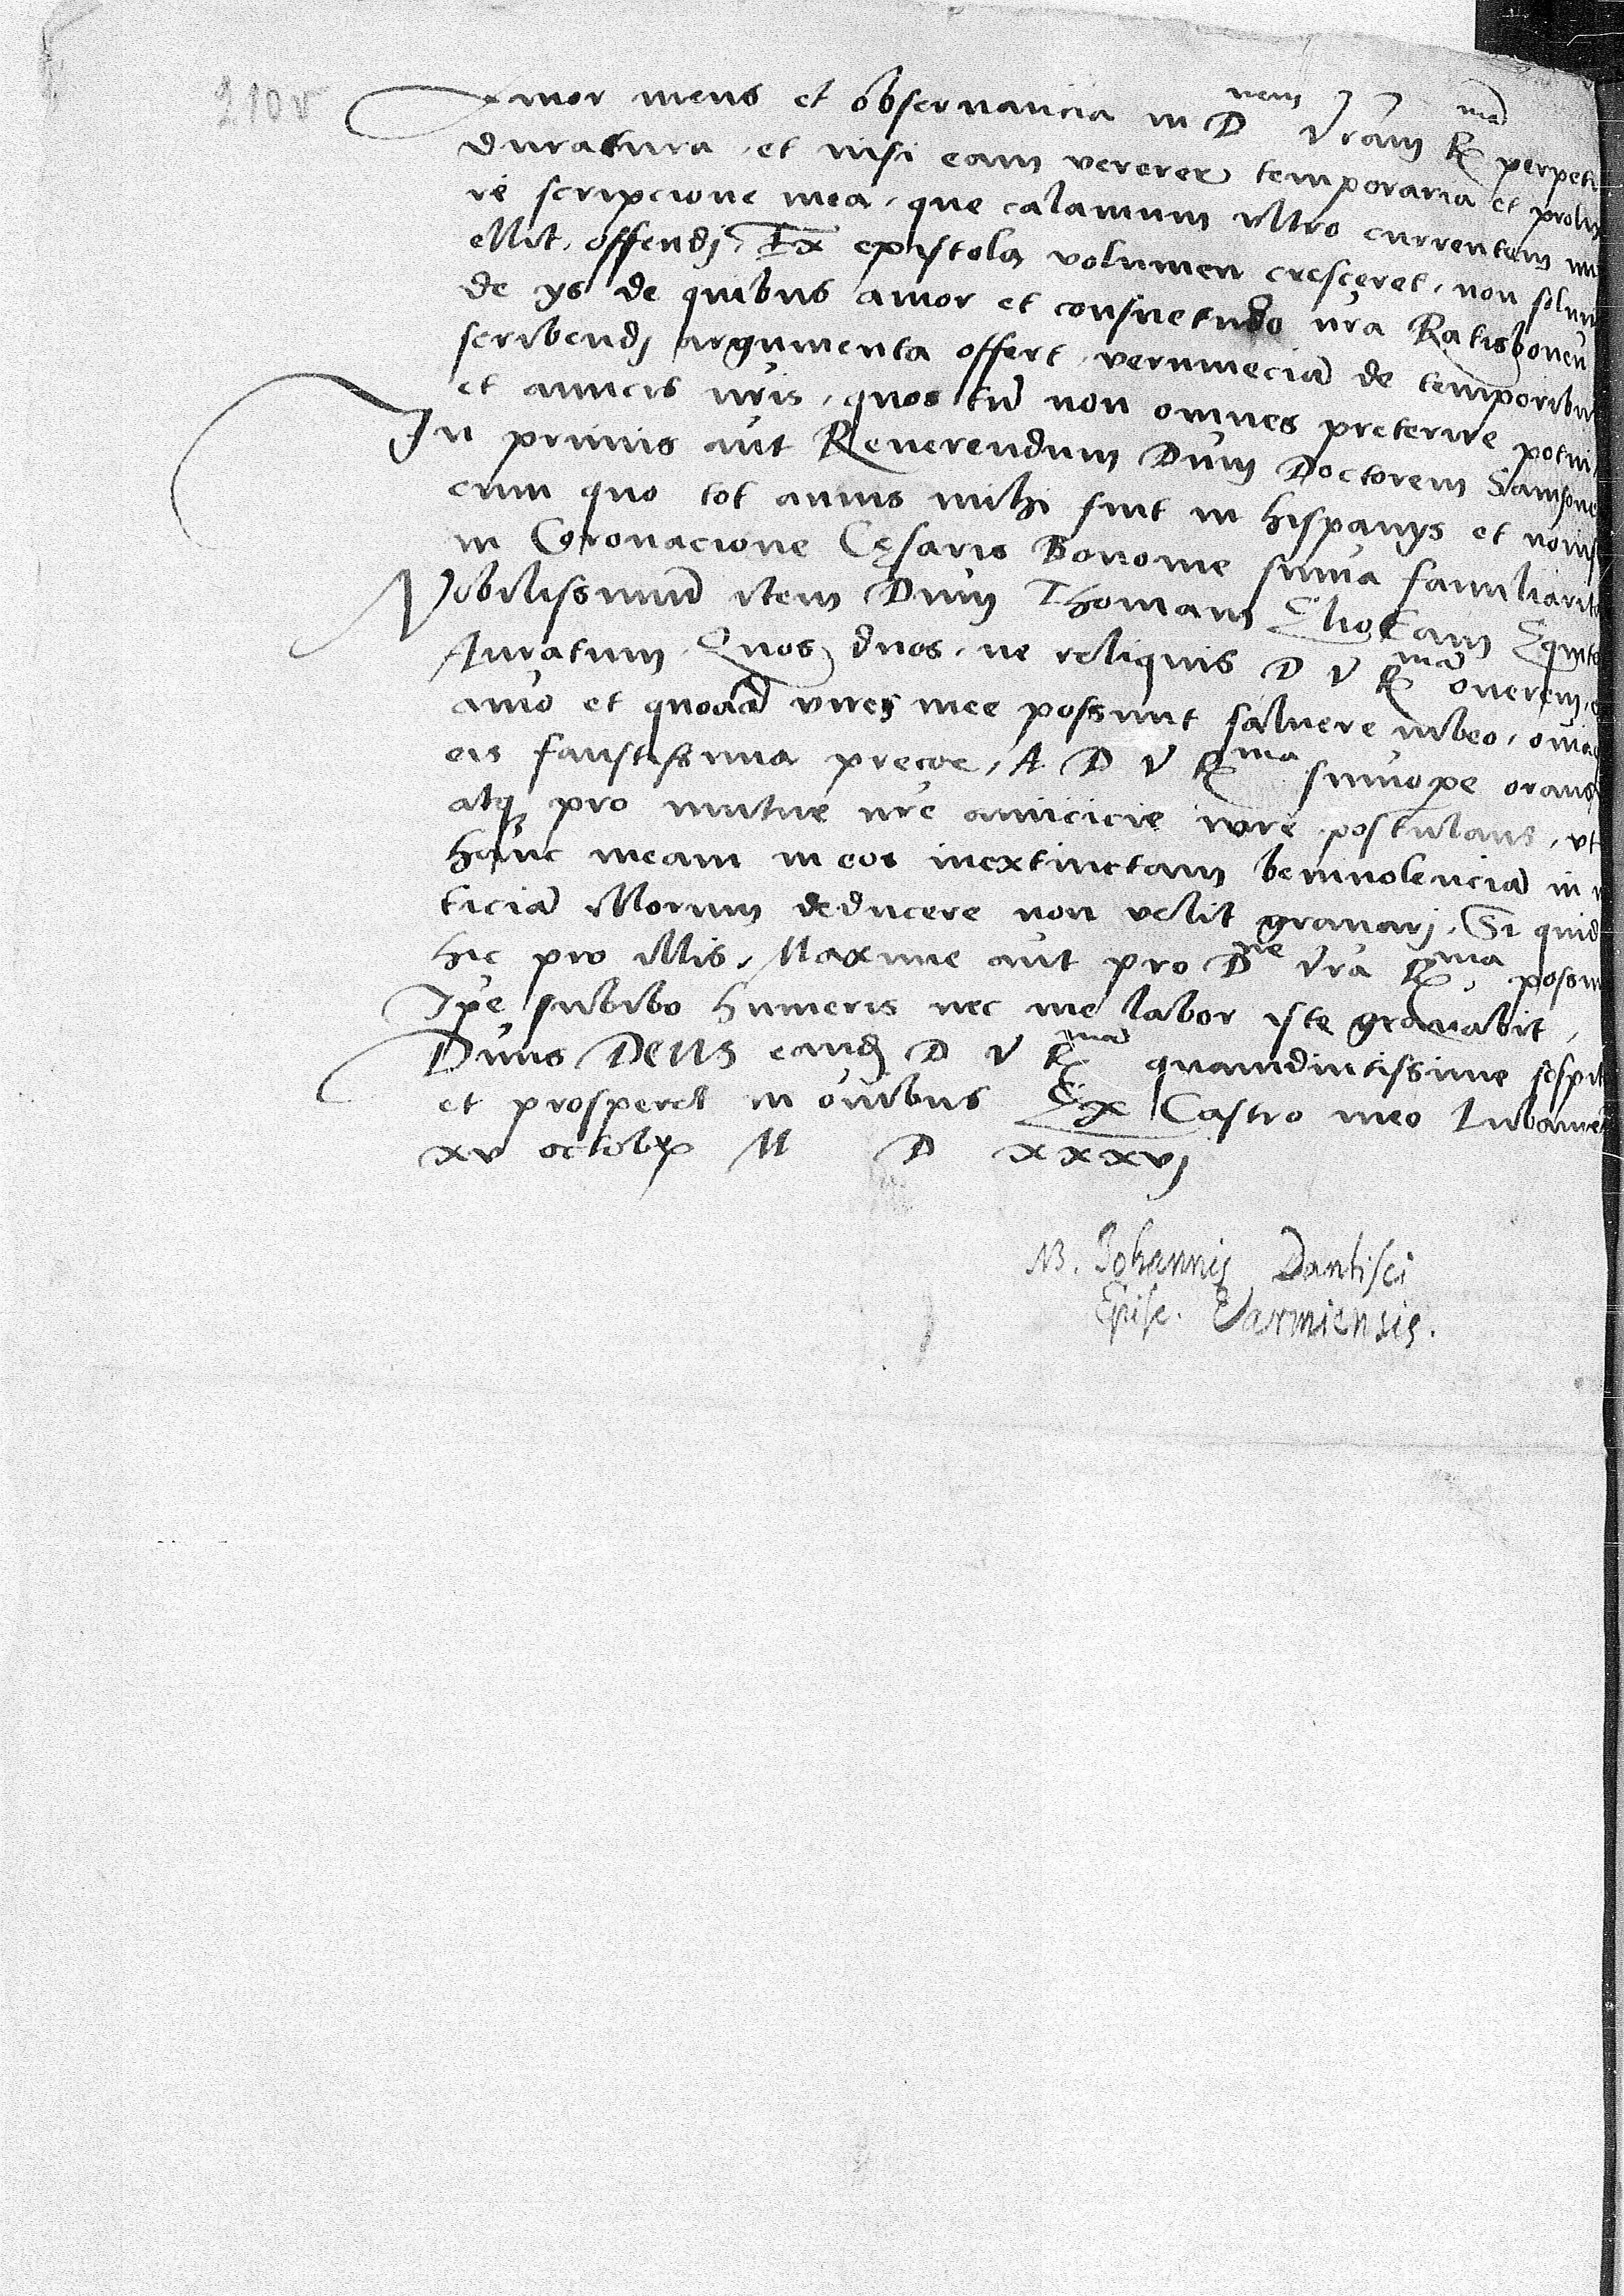 210v
Amor meus et observancia in D nem vram R ma perpet
duratura et nisi eam vererer temporaria et prolix
re scripcione mea, que calamum ultro currentem
ellit, offendj, Ex epistola volumen cresceret, non solum
de ys de quibus amor et consuetudo nra Ratisbonen
scribendj argumenta offert, verumeciam de temporibus
et amicis nris, quos tn non omnes preterire potui
In primis aut Reverendum Dnm Doctorem Sampsone
cum quo tot annis mihi fuit in hispanys et noviss
in Coronacione Cęsaris Bononie summa familiarita
Nobilissimum item Dnm Thomam Eliotam Equite
Auratum, Quos duos, ne reliquis D V R ma onerem,
amo et quoad vires mee possunt salvere iubeo, omia
eis faustissima precor, A D V R ma summope orans
atq pro mutue nre amicicie iure postulans, ut
hanc meam in eos inextinctam benivolenciam in n
ticiam illorum deducere non velit gravarj, Si quid
hic pro illis, Maxime aut pro D ne vra R ma, possu
Ipe subibo humeris nec me labor iste gravabit,
Dnus DEUS eand D V R ma quamdiutissime sospit
et prosperet in omibus Ex Castro meo Lubavien
XV octobr M D XXXVJ
NB. Johannis Dantisci
Episc. Varmiensis.